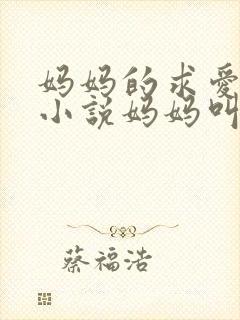 妈妈的求爱
小说妈妈叫
蔡福浩